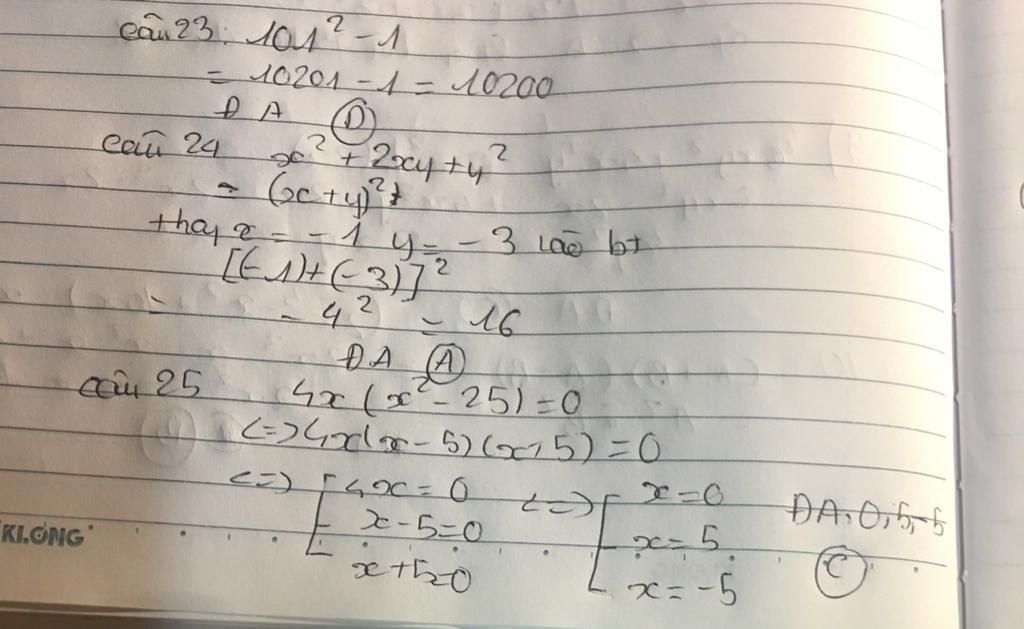 Câu 23: 101² - 1
= 10201 - 1 = 10200
ĐA Ⓓ
Câu 24 x² + 2xy + y²
= (x + y)²
thay x = -1 y = -3 vào bt
[(-1) + (-3)]²
= -4² = 16
ĐA Ⓐ
Câu 25 4x (x² - 25) = 0
<=> 4x(x - 5)(x + 5) = 0
<=> [ 4x = 0 <=> [ x = 0 ĐA: 0, 5, -5
x - 5 = 0 x = 5 Ⓒ
x + 5 = 0 x = -5
KLONG